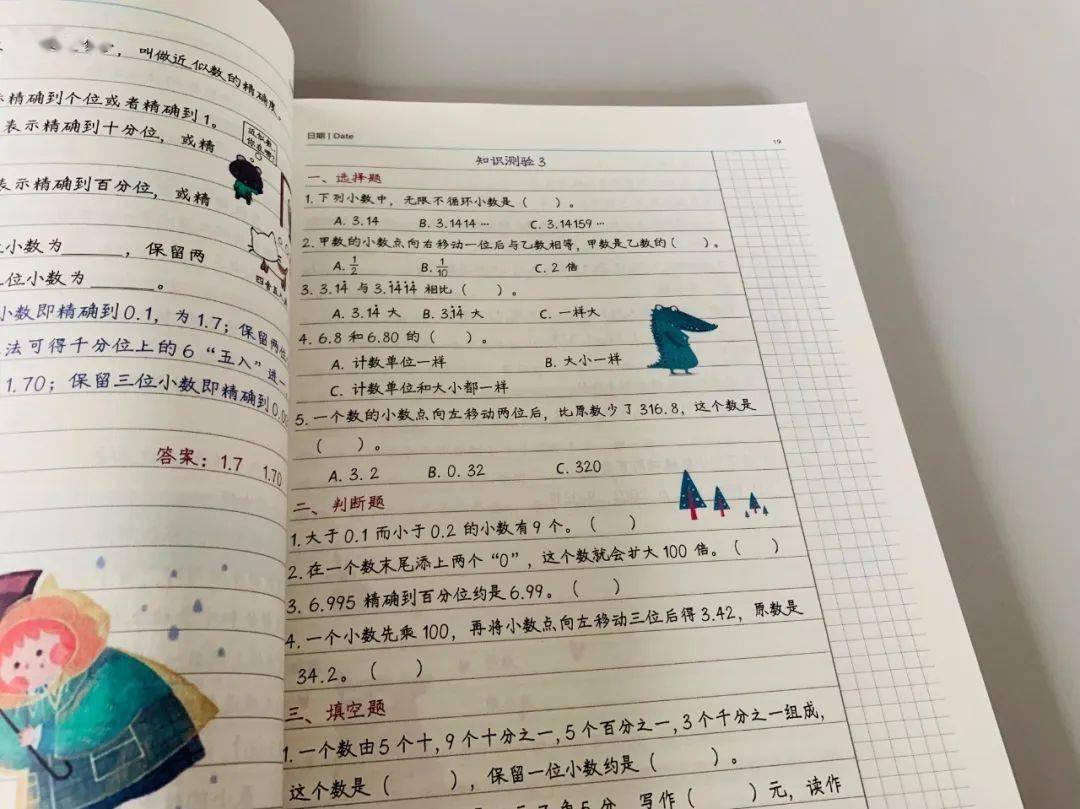 ，叫做近似数的精确度。
示精确到个位或者精确到1。
表示精确到十分位，或精
表示精确到百分位，或精
小数为______，保留两
位小数为______。
小数即精确到0.1，为1.7；保留两位
法可得千分位上的6“五入”进一
1.70；保留三位小数即精确到0.0
答案：1.7 1.70
近似数
你在哪?
日期 | Date
19
知识测验3
一、选择题
1.下列小数中，无限不循环小数是（ ）。
A. 3.14 B. 3.1414… C. 3.14159…
2.甲数的小数点向右移动一位后与乙数相等，甲数是乙数的（ ）。
A. 1/2 B. 1/10 C. 2倍
3. 3.14̇ 与 3.1̇4̇1̇4̇ 相比（ ）。
A. 3.14̇ 大 B. 3.1̇4̇ 大 C. 一样大
4. 6.8和6.80的（ ）。
A. 计数单位一样 B. 大小一样
C. 计数单位和大小都一样
5. 一个数的小数点向左移动两位后，比原数少了316.8，这个数是
（ ）。
A. 3.2 B. 0.32 C. 320
二、判断题
1.大于0.1而小于0.2的小数有9个。（ ）
2.在一个数末尾添上两个“0”，这个数就会扩大100倍。（ ）
3. 6.995精确到百分位约是6.99。（ ）
4. 一个小数先乘100，再将小数点向左移动三位后得3.42，原数是
34.2。（ ）
三、填空题
1.一个数由5个十，9个十分之一，5个百分之一，3个千分之一组成，
这个数是（ ），保留一位小数约是（ ）。
角5分，写作（ ）元，读作